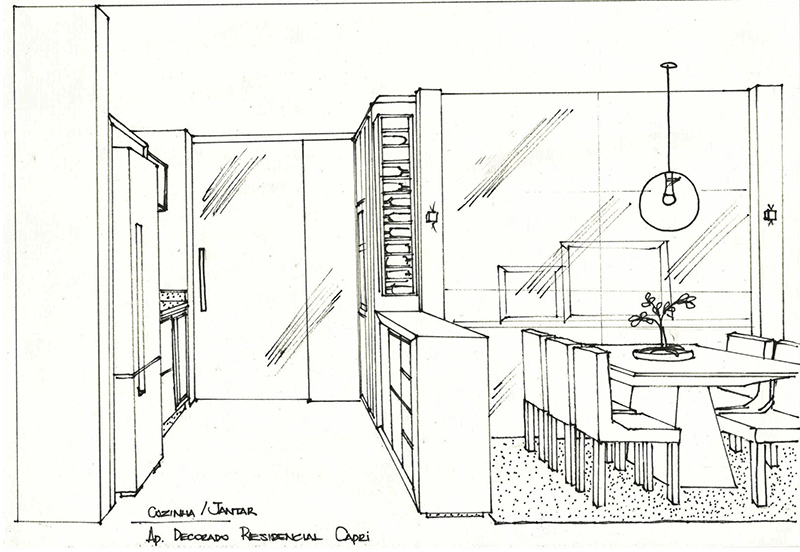 COZINHA / JANTAR
AP. DECORADO RESIDENCIAL CAPRI